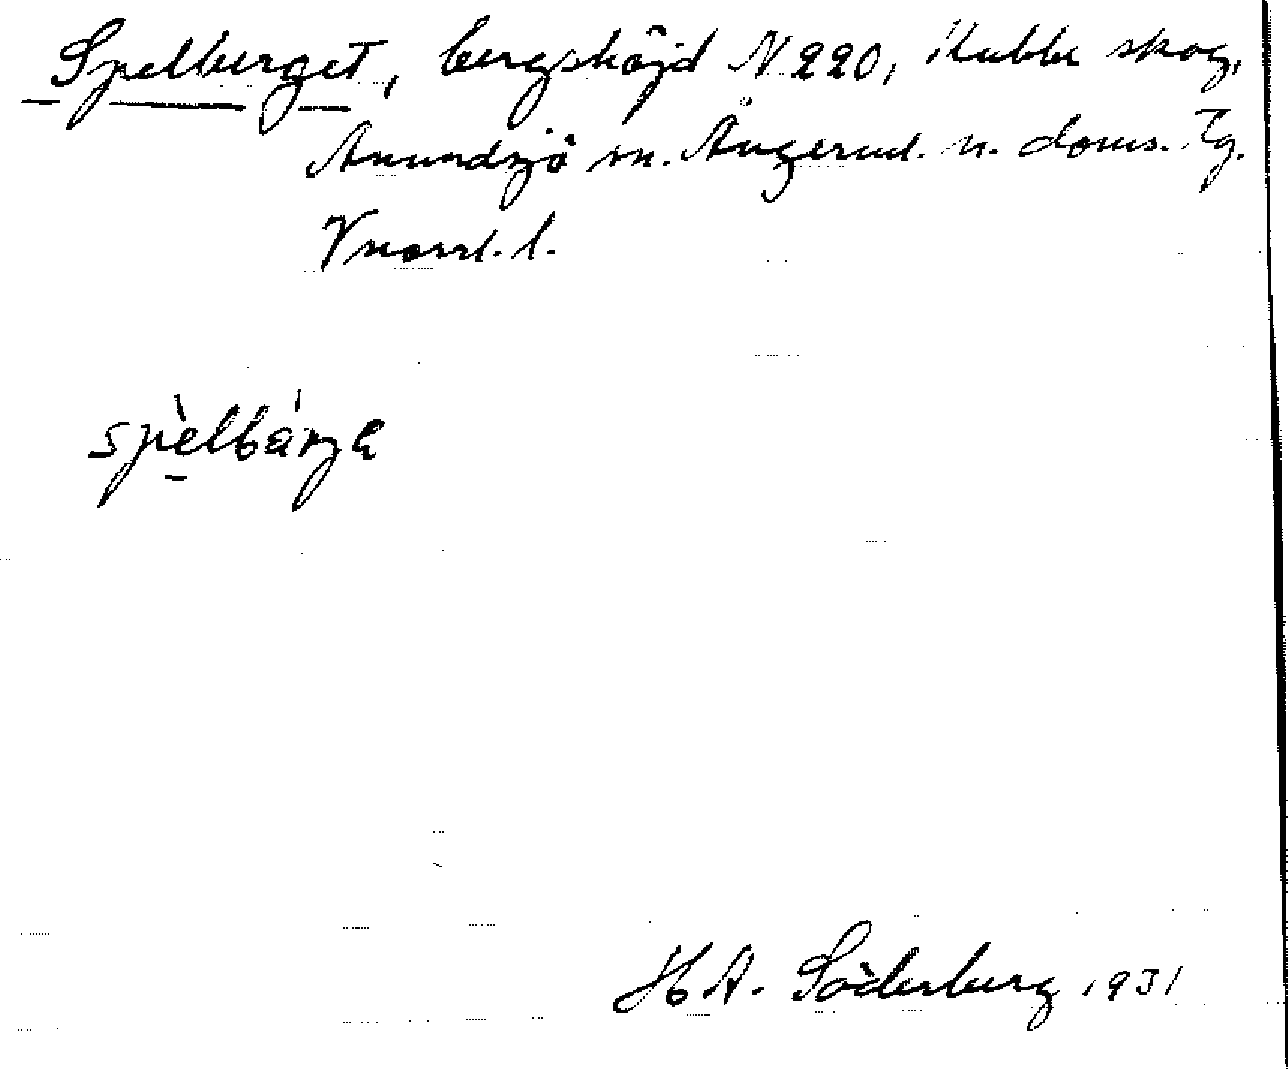 Spelberget, bergshöjd N 220, Kubbe skog,
Anundsjö sn. Ångerml. n. doms. Tg.
Vnorrl. l.
spèlbárga
H A. Söderberg 1931